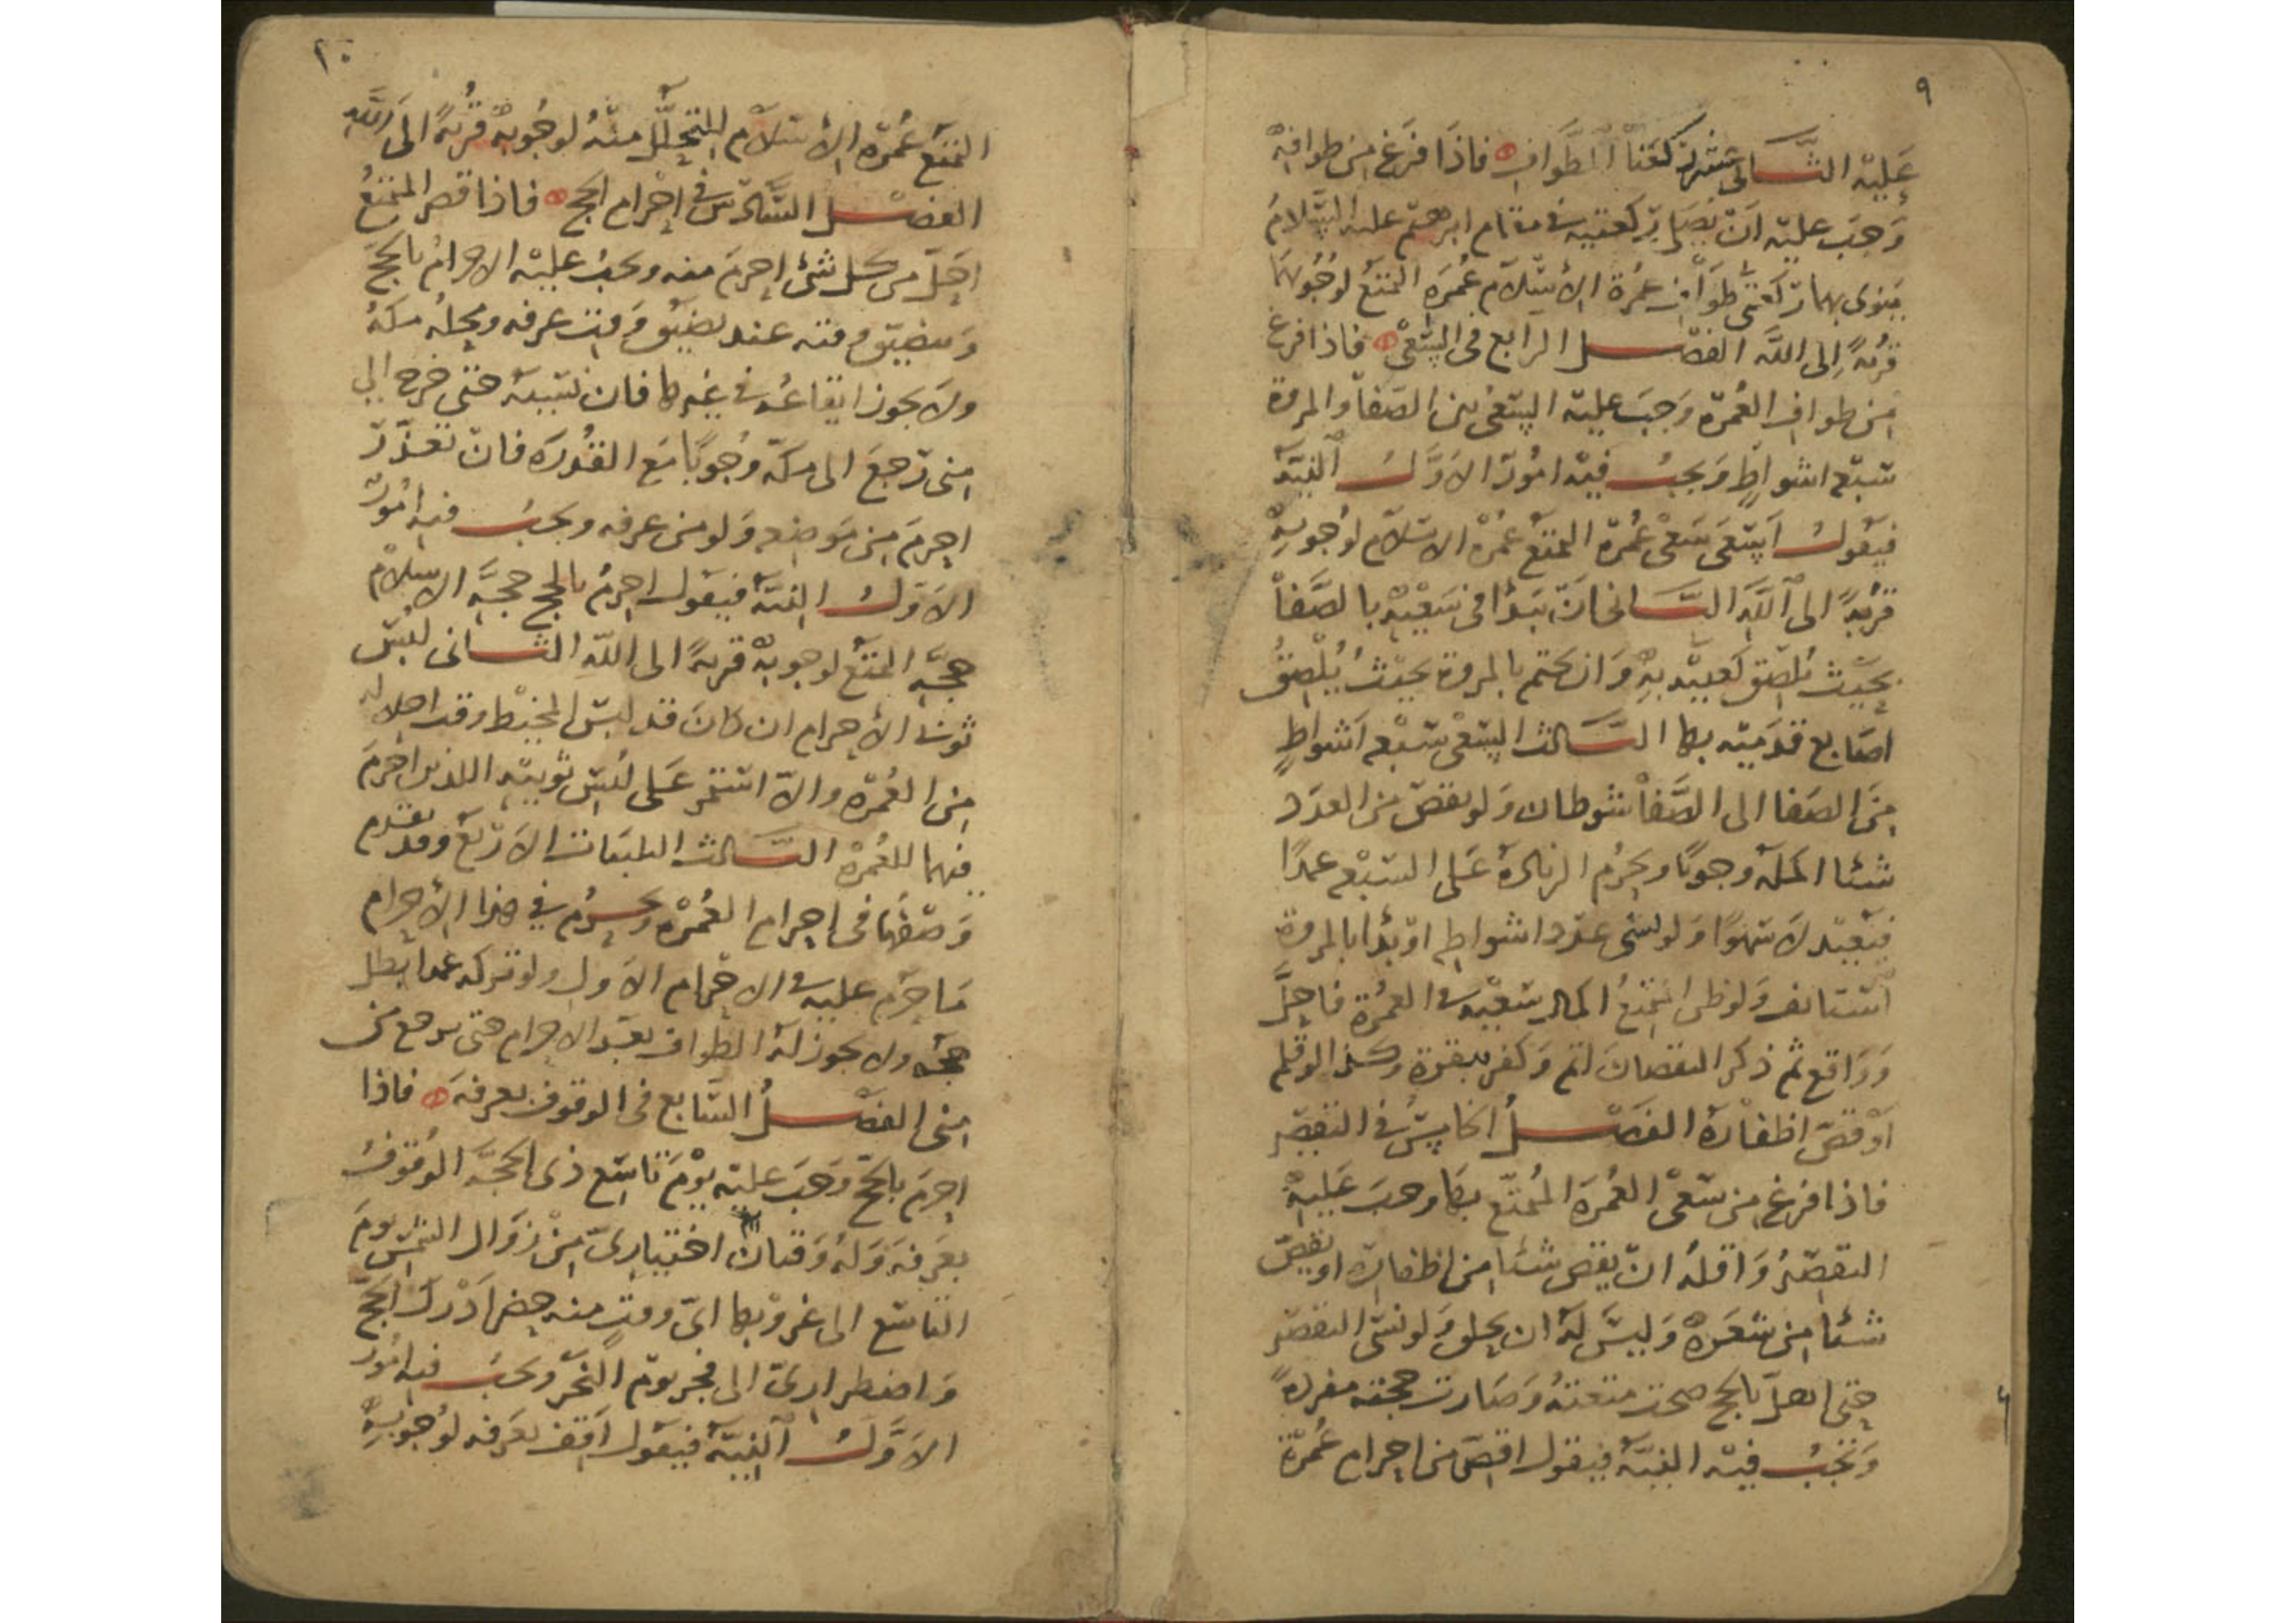 ٩
عليه الثالث ركعتا الطواف فاذا فرغ من طوافه
وجب عليه ان يصلي ركعتيه في مقام ابرهيم عليه السلام
ينوى بهما ركعتي طواف عمرة الاسلام عمرة التمتع لوجوبهما
قربة الى الله الفصل الرابع فى السعى فاذا فرغ
من طواف العمرة وجب عليه السعى بين الصفا والمروة
سبعة اشواط ويجب فيه امور الاول النية
فيقول اسعى سعى عمرة التمتع عمرة الاسلام لوجوبه
قربة الى الله الثانى ان يبدا فى سعيه بالصفا
بحيث يلصق كعبيه به وان يختم بالمروة بحيث يلصق
اصابع قدميه بها الثالث السعى سبعة اشواط
من الصفا الى الصفا شوطان ولو نقص من العدد
شئا اكمله وجوبا ويحرم الزيادة على السبعة عمدا
فيعيد لا سهوا ولو نسى عدد اشواطه او بدا بالمروة
استانف ولو ظن المتمتع اكمال سعيه في العمرة فاحل
وواقع ثم ذكر النقصان اتم وكفر ببقرة وكذا لو قلم
او قص اظفاره الفصل الخامس في التقصير
فاذا فرغ من سعى العمرة المتمتع بها وجب عليه
التقصير واقله ان يقص شئا من اظفاره او يقص
شئا من شعره وليس له ان يحلق ولو نسى التقصير
حتى اهل بالحج صحت متعته وصارت حجته مفردة
وتجب فيه النية فيقول اقصر من احرام عمرة
١٠
التمتع عمرة الاسلام للتحلل منه لوجوبه قربة الى الله
الفصل السادس في احرام الحج فاذا قصر المتمتع
احل من كل شئ احرم منه ويجب عليه الاحرام بالحج
ويتضيق وقته عند تضيق وقت عرفه ومحله مكة
ولا يجوز ايقاعه في غيرها فان نسيه حتى خرج الى
منى رجع الى مكة وجوبا مع القدرة فان تعذر
احرم من موضعه ولو من عرفه ويجب فيه امور
الاول النية فيقول احرم بالحج حجة الاسلام
حجة التمتع لوجوبه قربة الى الله الثانى لبس
ثوبى الاحرام ان كان قد لبس المخيط وقت احلاله
من العمرة والا استمر على لبس ثوبيه اللذين احرم
فيهما للعمرة الثالث التلبيات الاربع وقد تقدم
وصفها فى احرام العمرة ويحرم في هذا الاحرام
ما حرم عليه في الاحرام الاول ولو تركه عمدا بطل
حجه ولا يجوز له الطواف بعد الاحرام حتى يرجع من
منى الفصل السابع فى الوقوف بعرفة فاذا
احرم بالحج وجب عليه يوم تاسع ذى الحجة الوقوف
بعرفه وله وقتان اختيارى من زوال الشمس يوم
التاسع الى غروبها اى وقت منه حضر ادرك الحج
واضطرارى الى فجر يوم النحر ويجب فيه امور
الاول النية فيقول اقف بعرفه لوجوبه